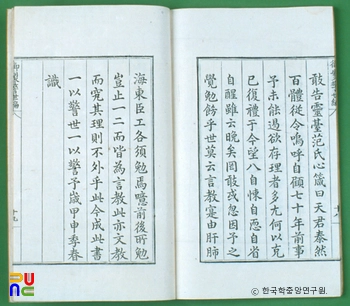 敢告靈臺范氏心箴曰天君泰然
百體從令嗚呼自顧七十年前事
予未能遏欲存理者多尤何以克
己復禮于今望八自悚自
自醒雖云晚矣罔敢或忽因予之
覺勉飭乎世莫云言教寔由肝肺
海東臣工各須勉焉噫前後所勉
豈止一二而皆為言教此亦文教
而究其理則不外乎此今成此書
一以警世一以警予歲甲申季春
識
御製警世編
十九
PUNC
ⓒ 한국학중앙연구원.